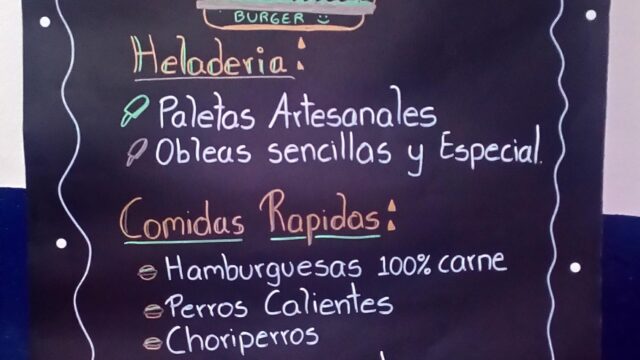 BURGER
Heladeria:
Paletas Artesanales
Obleas sencillas y Especial.
Comidas Rapidas:
Hamburguesas 100% carne
Perros Calientes
Choriperros